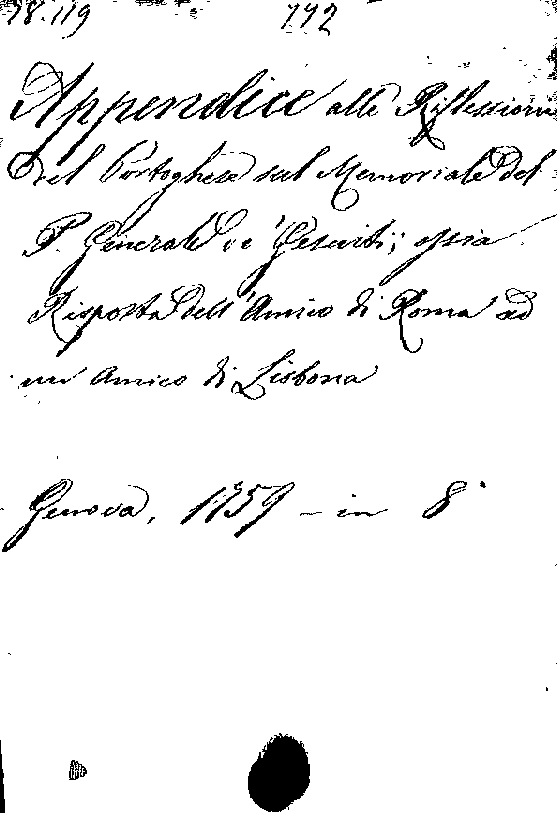 78.119 772
Appendice alle Riflessioni
del Portoghese sul Memoriale del
P. Generale de' Gesuiti; ossia
Risposta dell'Amico di Roma ad
un Amico di Lisbona
Genova, 1759 - in 8°